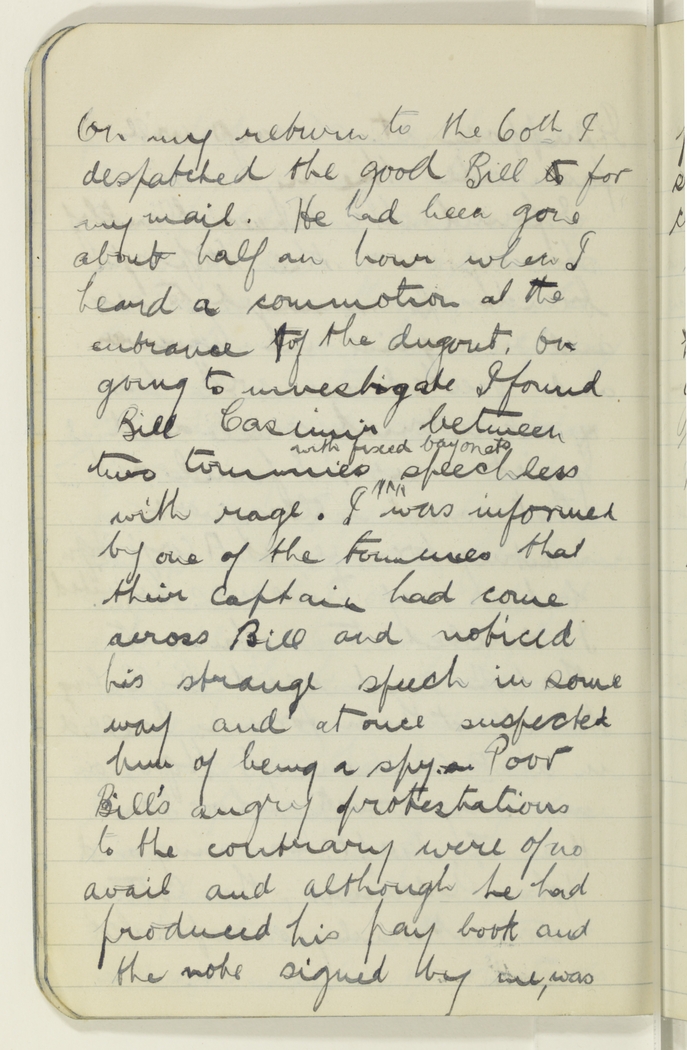 On my return to the 60th I
despatched the good Bill to for
my mail. He had been gone
about half an hour when I
heard a commotion at the
entrance of the dugout. On
going to investigate I found
Bill Casimir between
with fixed bayonets
two tommies speechless
with rage. I was informed
by one of the tommies that
their captain had come
across Bill and noticed
his strange speech in some
way and at once suspected
him of being a spy. Poor
Bill's angry protestations
to the contrary were of no
avail and although he had
produced his pay book and
the note signed by me, was